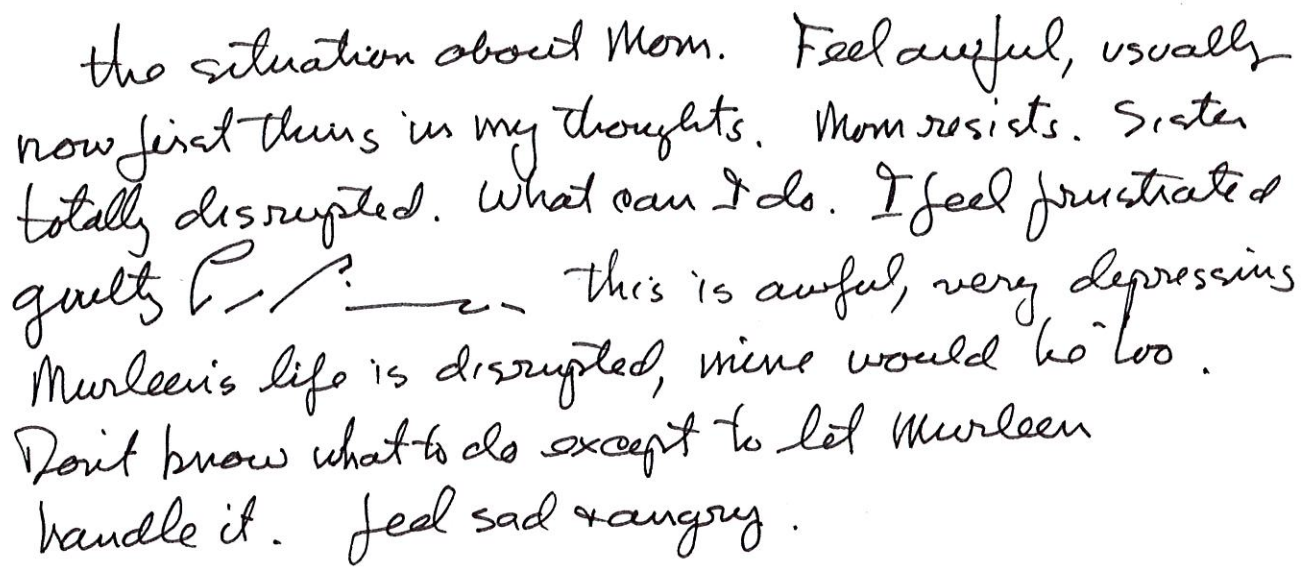 the situation about Mom. Feel awful, usually
now first thing in my thoughts. Mom resists. Sister
totally disrupted. What can I do. I feel frustrated
guilty this is awful, very depressing
Murleen's life is disrupted, mine would be too.
Don't know what to do except to let Murleen
handle it. feel sad + angry.